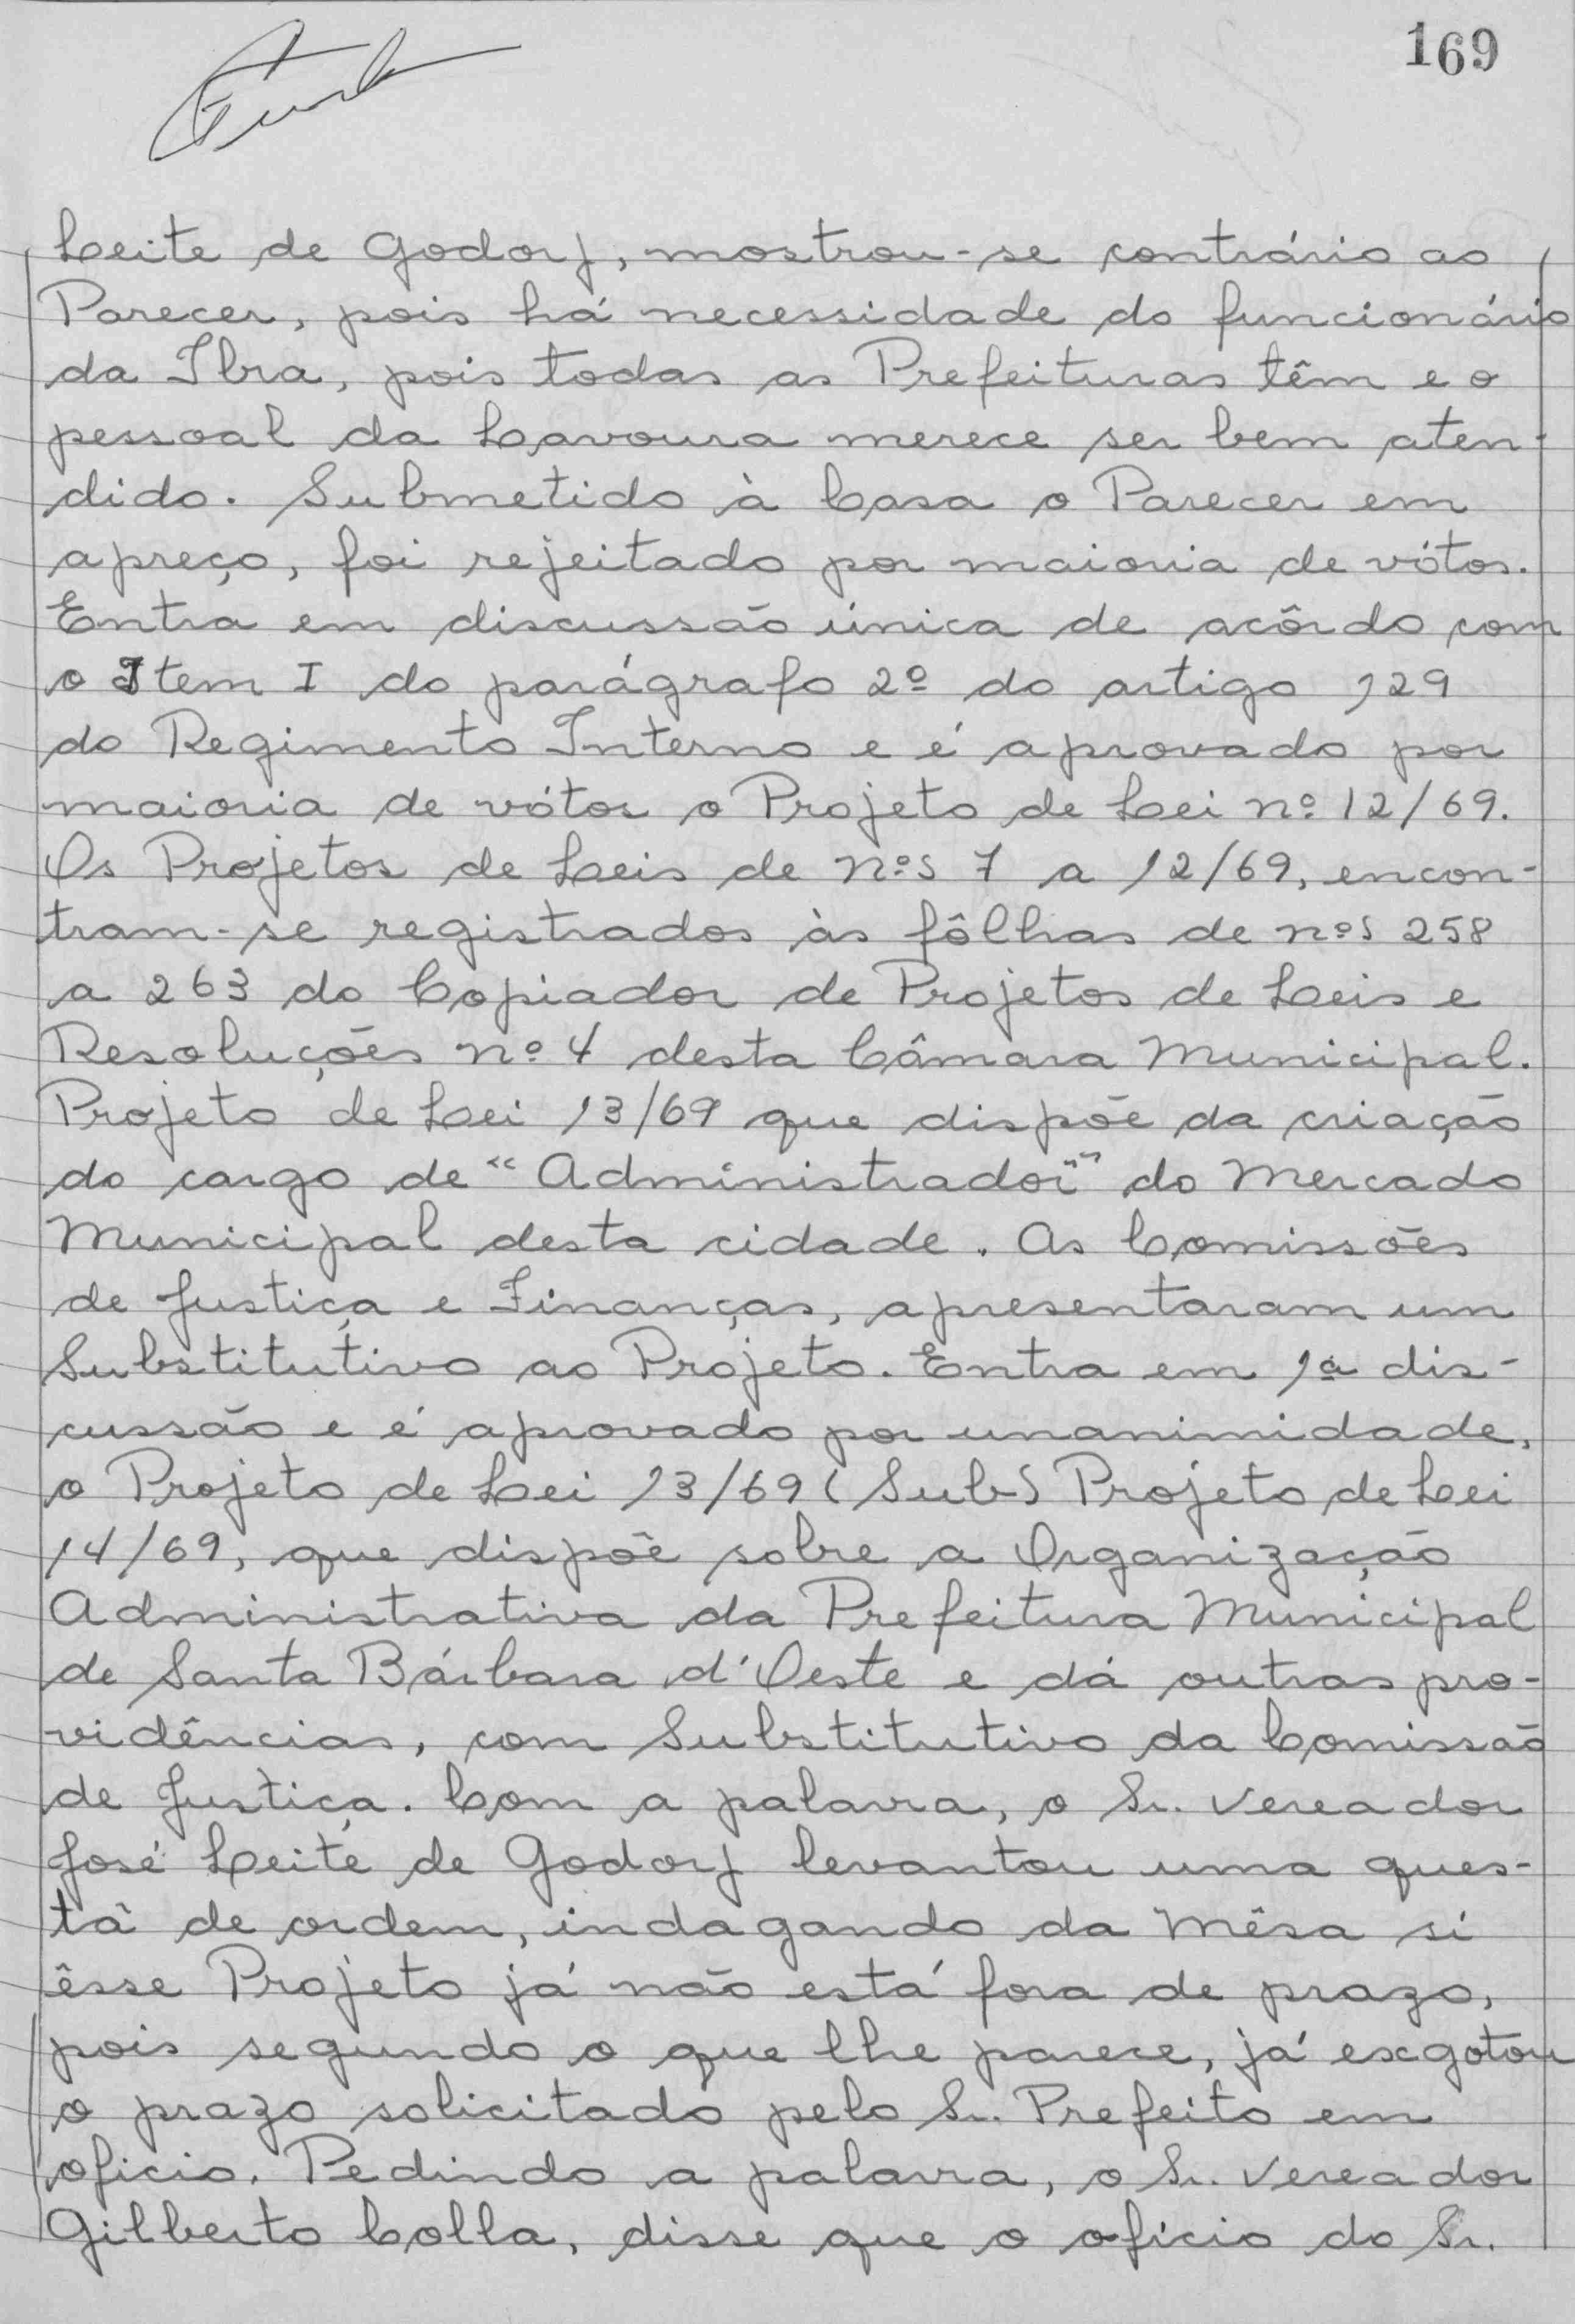 169
Leite de Godoy, mostrou-se contrário ao
Parecer, pois há necessidade do funcionário
da Ibra, pois todas as Prefeituras têm e o
pessoal da Lavoura merece ser bem aten-
dido. Submetido à Casa o Parecer em
apreço, foi rejeitado por maioria de vótos.
Entra em discussão única de acôrdo com
o Item I do parágrafo 2º do artigo 129
do Regimento Interno e é aprovado por
maioria de vótos o Projeto de Lei nº 12/69.
Os Projetos de Leis de nºs 7 a 12/69, encon-
tram-se registrados às fôlhas de nºs 258
a 263 do Copiador de Projetos de Leis e
Resoluções nº 4 desta Câmara Municipal.
Projeto de Lei 13/69 que dispõe da criação
do cargo de "Administrador" do Mercado
Municipal desta cidade. As Comissões
de Justiça e Finanças, apresentaram um
Substitutivo ao Projeto. Entra em 1ª dis-
cussão e é aprovado por unanimidade,
o Projeto de Lei 13/69 (Sub) Projeto de Lei
14/69, que dispõe sobre a Organização
Administrativa da Prefeitura Municipal
de Santa Bárbara d'Oeste e dá outras pro-
vidências, com Substitutivo da Comissão
de Justiça. Com a palavra, o Sr. Vereador
José Leite de Godoy levantou uma ques-
tã de ordem, indagando da Mêsa si
êsse Projeto já não está fora de prazo,
pois segundo o que lhe parece, já exgotou
o prazo solicitado pelo Sr. Prefeito em
oficio. Pedindo a palavra, o Sr. Vereador
Gilberto Colla, disse que o ofício do Sr.